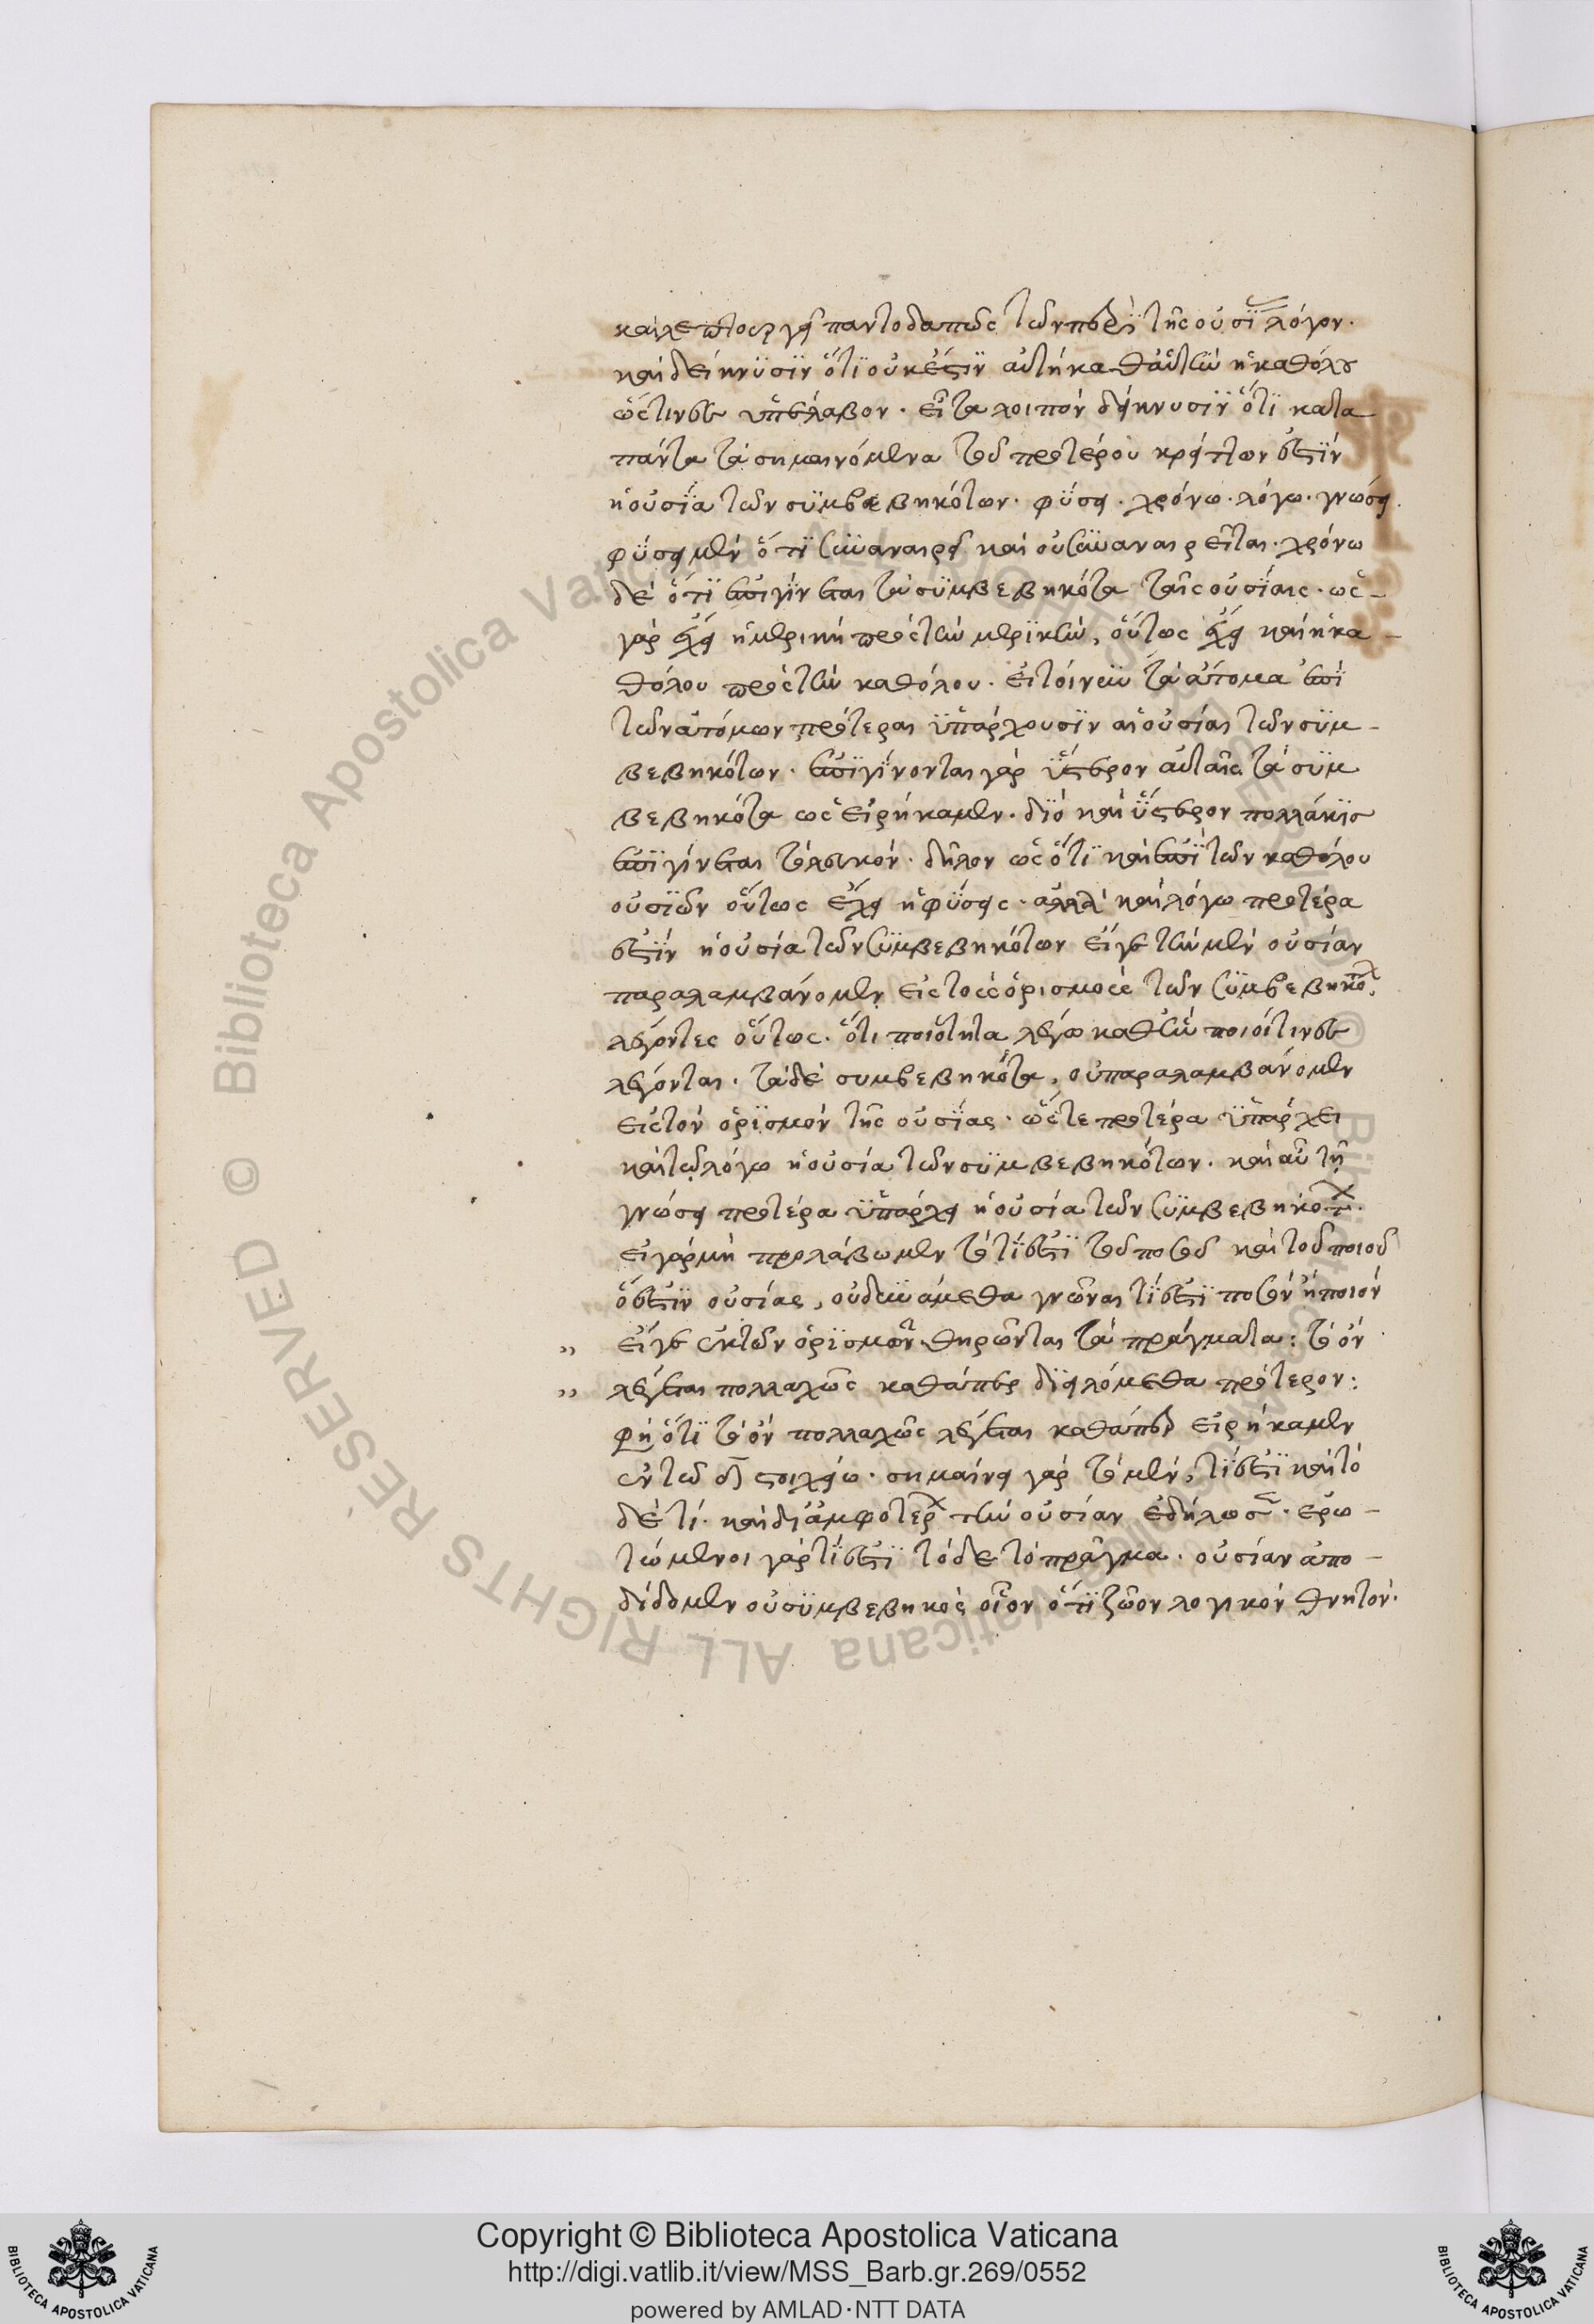 καὶ λεπτουργεῖ παντοδαπῶς τὸν περὶ τῆς οὐσίας λόγον.
καὶ δείκνυσιν ὅτι οὐκ ἔστιν αὐτὴ καθ' αὑτὴν ἡ καθόλου
ὥς τινες ὑπέλαβον. εἶτα λοιπὸν δείκνυσιν ὅτι κατὰ
πάντα τὰ σημαινόμενα τοῦ προτέρου κρείττων ἐστὶν
ἡ οὐσία τῶν συμβεβηκότων. φύσει. χρόνω. λόγω. γνώσει.
φύσει μὲν ὅτι συναναιρεῖ καὶ οὐ συναναιρεῖται. χρόνω
δὲ ὅτι ἐπιγίνεται τὰ συμβεβηκότα ταῖς οὐσίαις. ὡς
γὰρ ἔχει ἡ μερικὴ πρὸς τὴν μερικὴν, οὕτως ἔχει καὶ ἡ κα-
θόλου πρὸς τὴν καθόλου. εἰ τοίνυν τὰ ἄτομα ἐπὶ
τῶν ἀτόμων πρότεραι ὑπάρχουσιν αἱ οὐσίαι τῶν συμ-
βεβηκότων. ἐπιγίνονται γὰρ ὕστερον αὐταῖς τὰ συμ
βεβηκότα ὡς εἰρήκαμεν. διὸ καὶ ὕστερον πολλάκις
ἐπιγίνεται τὸ λευκόν. δῆλον ὡς ὅτι καὶ ἐπὶ τῶν καθόλου
οὐσιῶν οὕτως ἔχει ἡ φύσις. ἀλλὰ καὶ λόγω προτέρα
ἐστὶν ἡ οὐσία τῶν συμβεβηκότων εἴγε τὴν μὲν οὐσίαν
παραλαμβάνομεν εἰς τοὺς ὁρισμοὺς τῶν συμβεβηκότων.
λέγοντες οὕτως. ὅτι ποιότητα λέγω καθ' ἣν ποιοί τινες
λέγονται. τὰ δὲ συμβεβηκότα, οὐ παραλαμβάνομεν
εἰς τὸν ὁρισμὸν τῆς οὐσίας. ὥστε προτέρα ὑπάρχει
καὶ τῷ λόγω ἡ οὐσία τῶν συμβεβηκότων. καὶ αὖ τῇ
γνώσει προτέρα ὑπάρχει ἡ οὐσία τῶν συμβεβηκότων.
εἰ γὰρ μὴ προλάβωμεν τὸ τί ἐστι τοῦ ποσοῦ καὶ τοῦ ποιοῦ
ὅ ἐστιν οὐσίας, οὐ δυνάμεθα γνῶναι τί ἐστι ποσὸν ἢ ποιόν
εἴγε ἐκ τῶν ὁρισμῶν θηρῶνται τὰ πράγματα: τὸ ὂν
λέγεται πολλαχῶς καθάπερ διειλόμεθα πρότερον:
φησὶν ὅτι τὸ ὂν πολλαχῶς λέγεται καθάπερ εἰρήκαμεν
ἐν τῶ δ στοιχείω. σημαίνει γὰρ τὸ μὲν, τί ἐστι καὶ τὸ
δέ τι. καὶ δι' ἀμφοτέρων τὴν οὐσίαν ἐδήλωσεν. ἐρω-
τώμενοι γὰρ τί ἐστι τόδε τὸ πρᾶγμα. οὐσίαν ἀπο-
δίδομεν οὐ συμβεβηκὸς οἷον ὅτι ζῶον λογικὸν θνητόν.
Copyright © Biblioteca Apostolica Vaticana
http://digi.vatlib.it/view/MSS_Barb.gr.269/0552
powered by AMLAD·NTT DATA